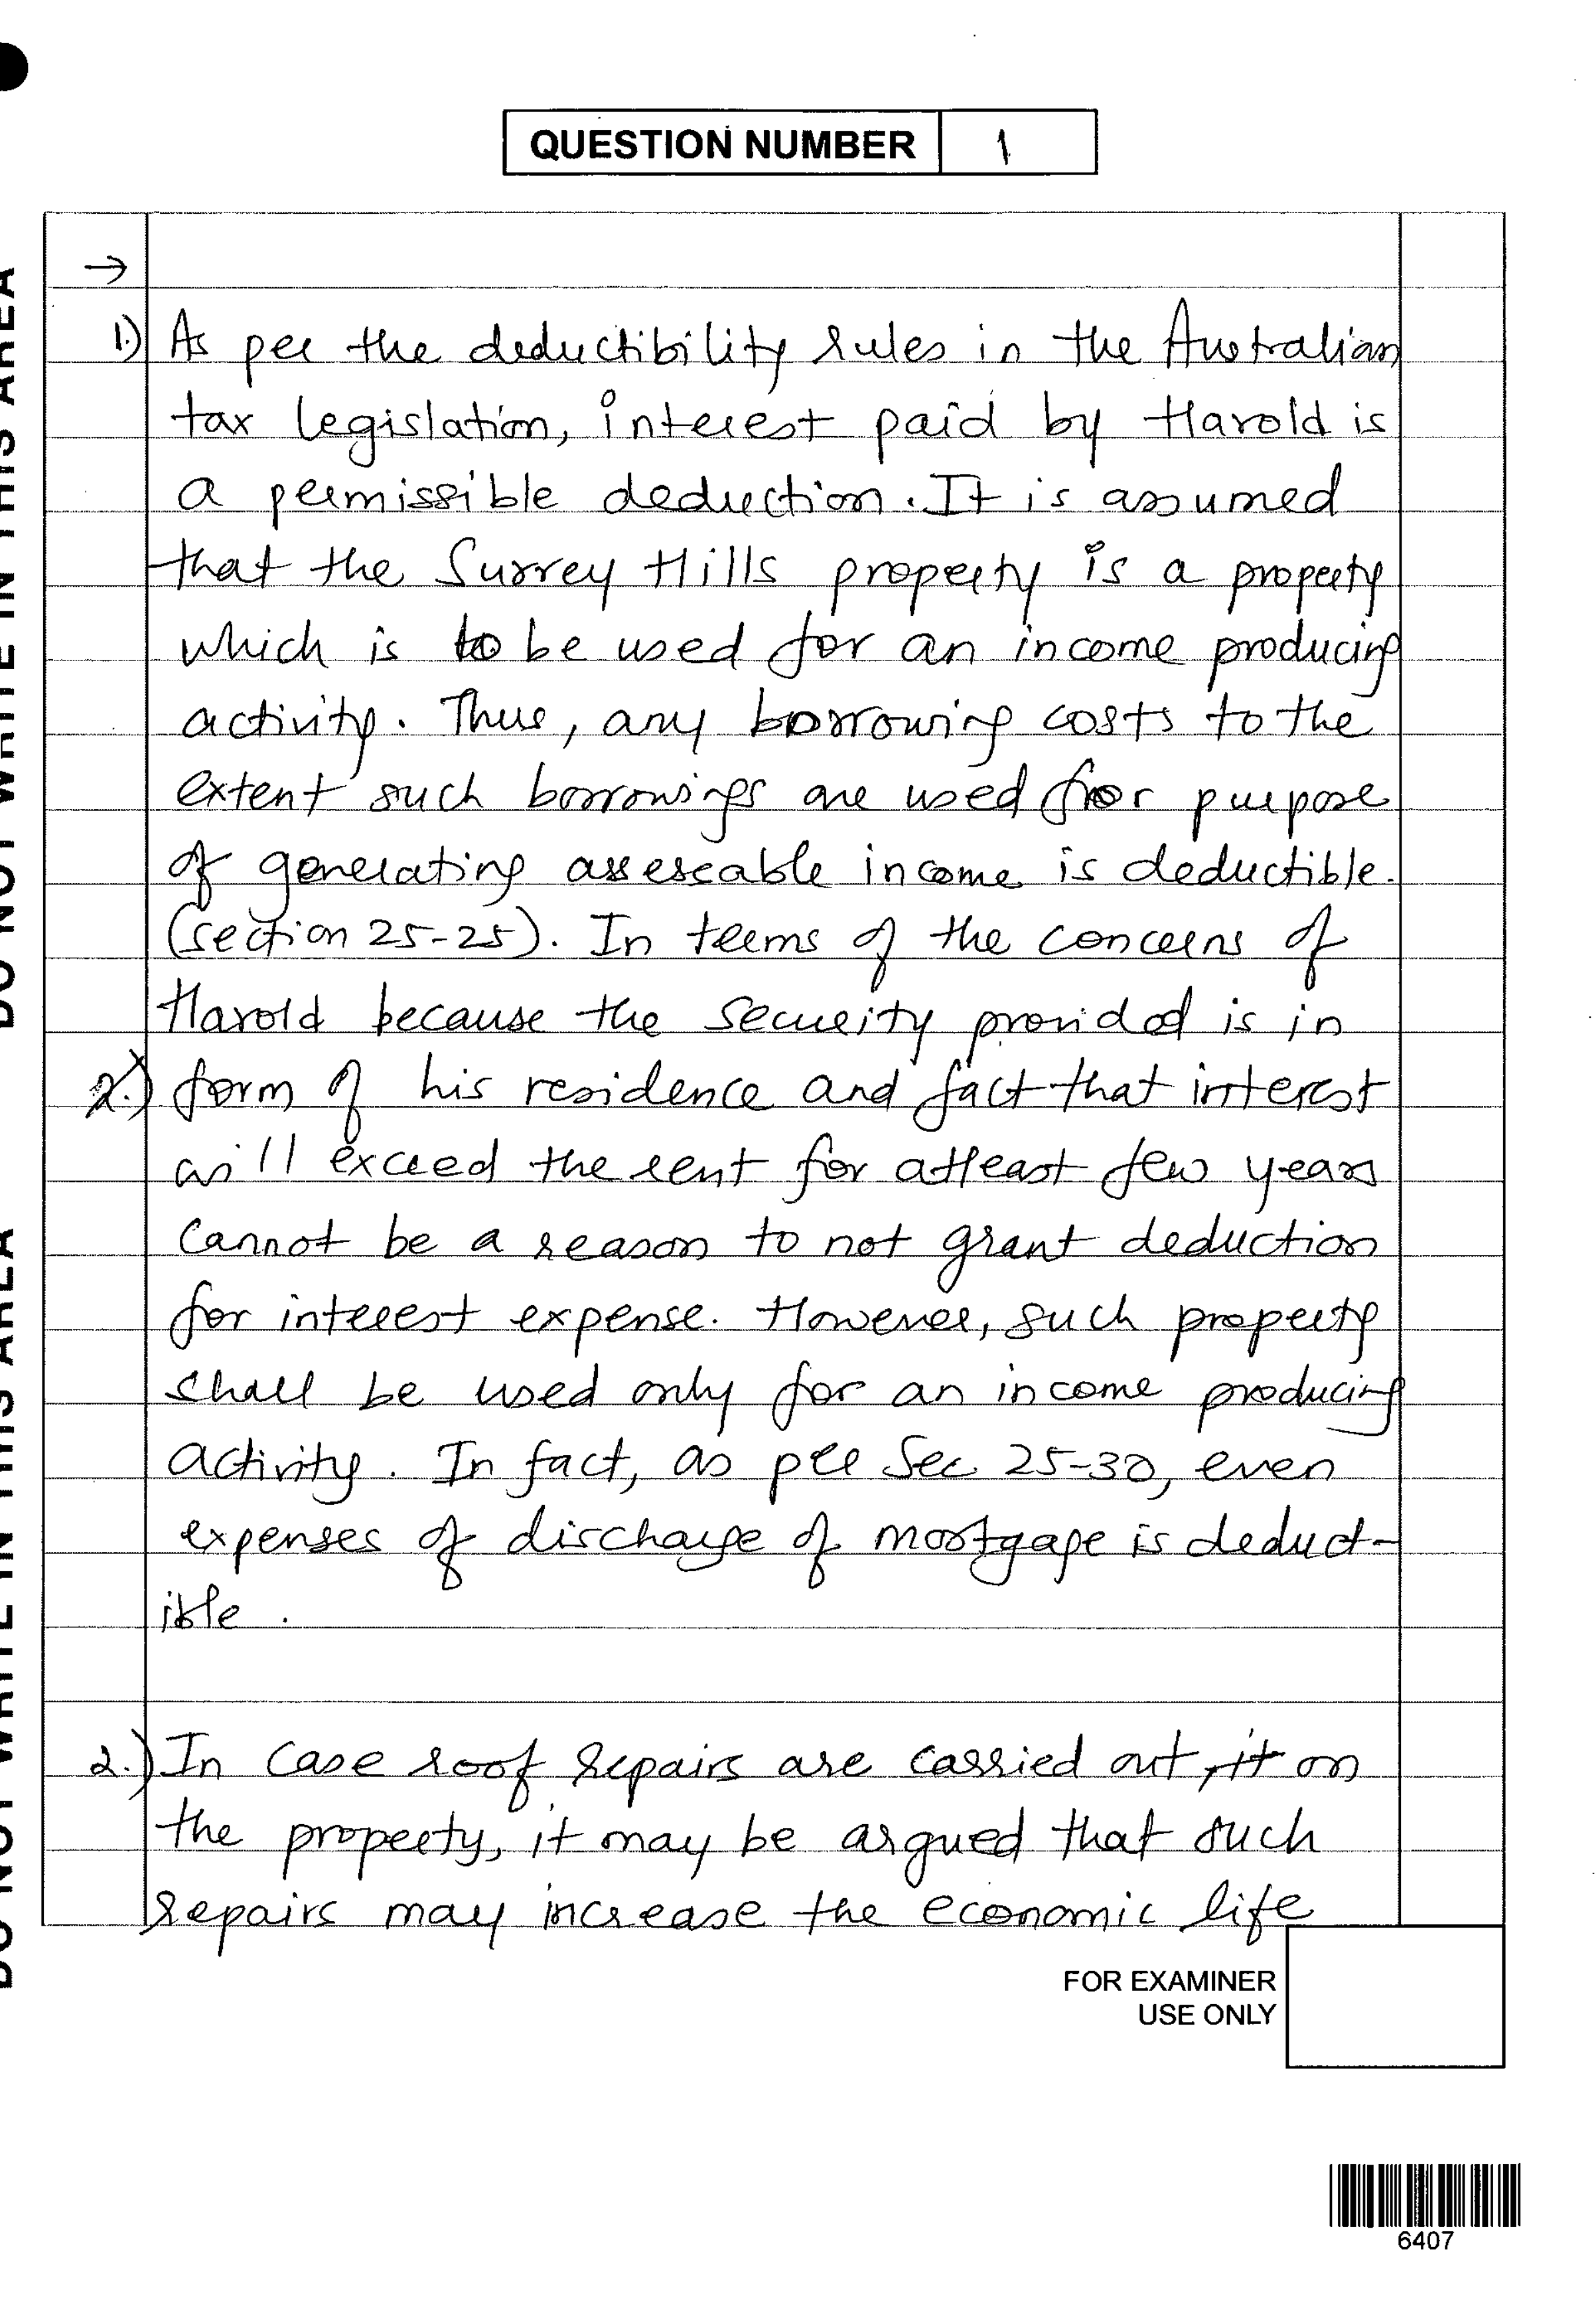 QUESTION NUMBER 1
→
1.) As per the deductibility rules in the Australian
tax legislation, interest paid by Harold is
a permissible deduction. It is assumed
that the Surrey Hills property is a property
which is to be used for an income producing
activity. Thus, any borrowing costs to the
extent such borrowings are used for purpose
of generating assessable income is deductible.
(section 25-25). In terms of the concerns of
Harold because the security provided is in
2.) form of his residence and fact that interest
will exceed the rent for atleast few years
cannot be a reason to not grant deduction
for interest expense. However, such property
shall be used only for an income producing
activity. In fact, as per Sec 25-30, even
expenses of discharge of mortgage is deduct-
ible.
2.) In case roof repairs are carried out, it on
the property, it may be argued that such
repairs may increase the economic life
FOR EXAMINER
USE ONLY
6407
DO NOT WRITE IN THIS AREA
DO NOT WRITE IN THIS AREA